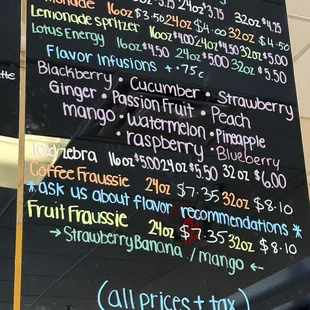 Lemonade 16oz $3.50 24oz $4.00 32oz $4.75
Lemonade spritzer 16oz $4.00 24oz $4.50 32oz $4.50
Lotus Energy 16oz $4.50 24oz $5.00 32oz $5.50
Flavor Infusions + .75¢
Blackberry • Cucumber • Strawberry
Ginger • Passion Fruit • Peach
mango • Watermelon • Pineapple
• raspberry • Blueberry
Iced zebra 16oz $5.00 24oz $5.50 32oz $6.00
Coffee Fraussie 24oz $7.35 32oz $8.10
*ask us about flavor recommendations *
Fruit Fraussie 24oz $7.35 32oz $8.10
→ Strawberry Banana / mango ←
(all prices + tax)